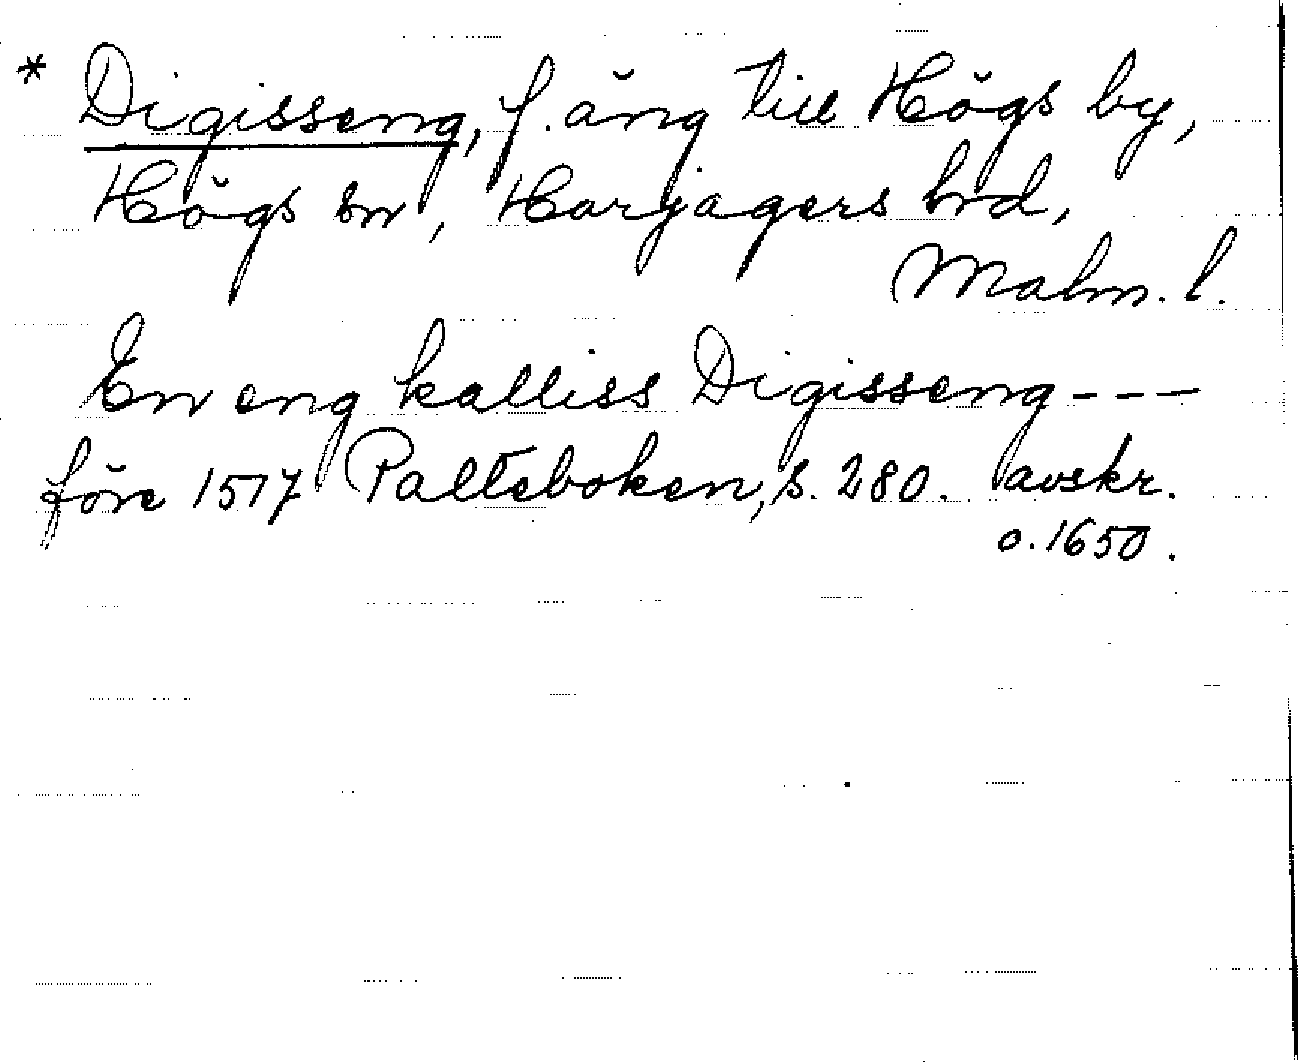 * Digisseng, f. äng till Högs by,
Högs sn, Harjagers hrd,
Malm. l.
En eng kalliss Digisseng ---
före 1517 Palteboken, s. 280. avskr.
o. 1650.